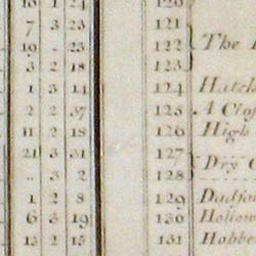 10 1 24 120
7 3 23 121
19 .. 23 122 The
3 2 18 123
1 3 14 124 Hatch
2 2 37 125 A Clos
11 2 18 126 High
21 3 31 127
.. 3 2 128 Dry C
1 2 8 129 Dadfor
6 3 19 130 Hollow
13 2 15 131 Hobbe